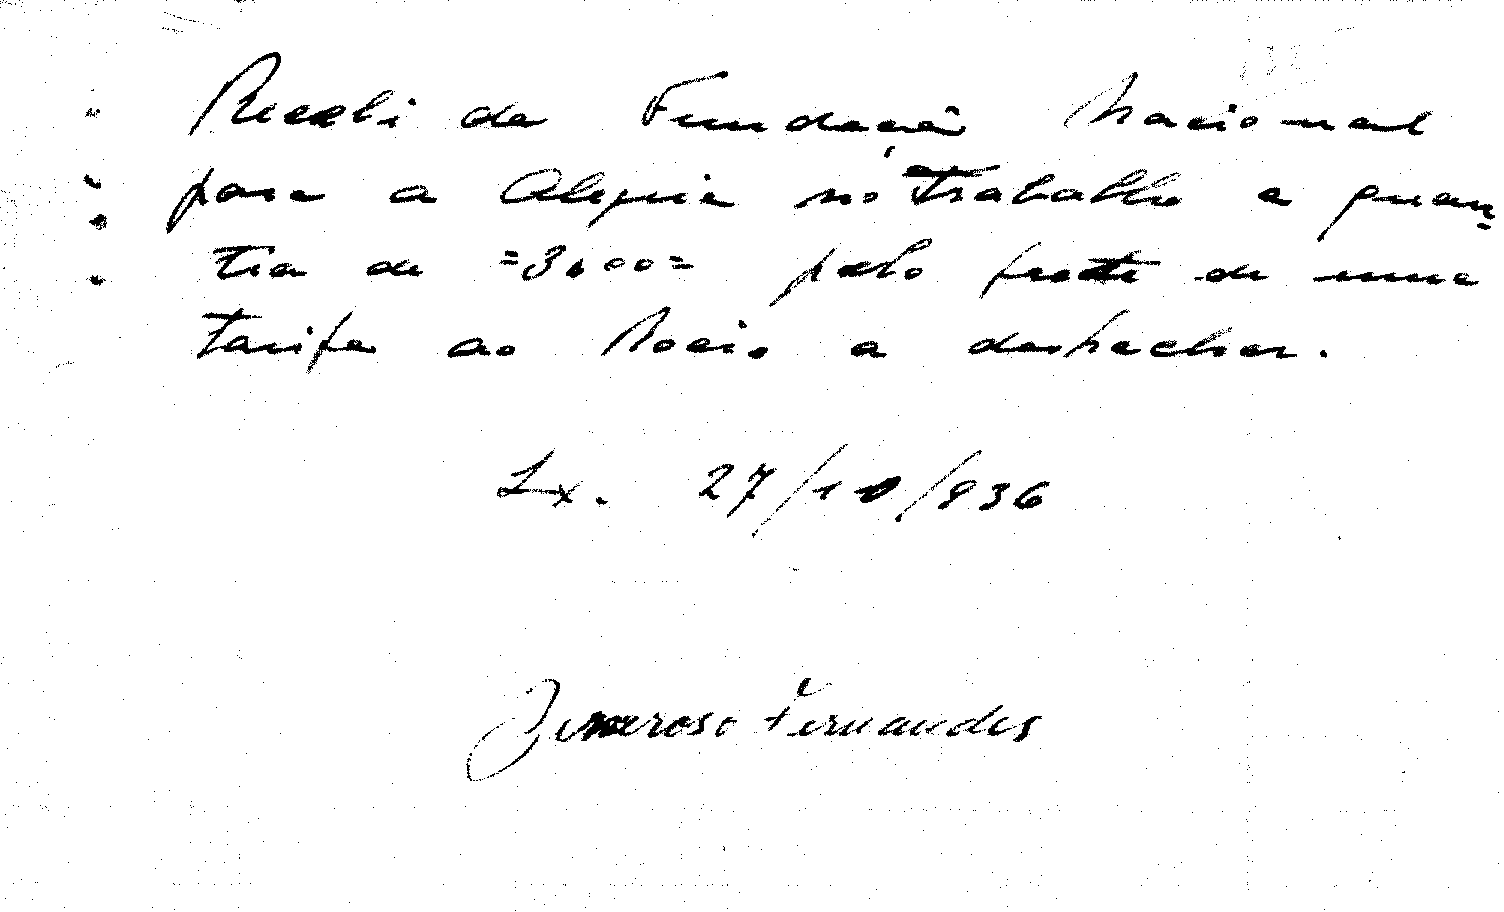 Recebi da Fundação Nacional
para a Alegria no Trabalho a quan-
tia de =3$00= pelo frete de uma
tarifa ao Rocio a despachar.
Lx. 27/10/936
Generoso Fernandes